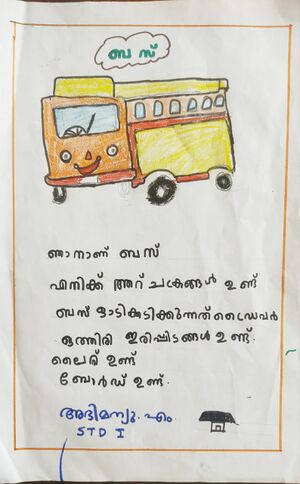 ബസ്
ഞാനാണ് ബസ്
എനിക്ക് ആറ് ചക്രങ്ങൾ ഉണ്ട്
ബസ് ഓടികുടിക്കുന്നത് ഡ്രൈവർ
ഒത്തിരി ഇരിപ്പിടങ്ങൾ ഉണ്ട്.
ലൈറ്റ് ഉണ്ട്
ബോർഡ് ഉണ്ട്.
അഭിമന്യു. എം.
STD I